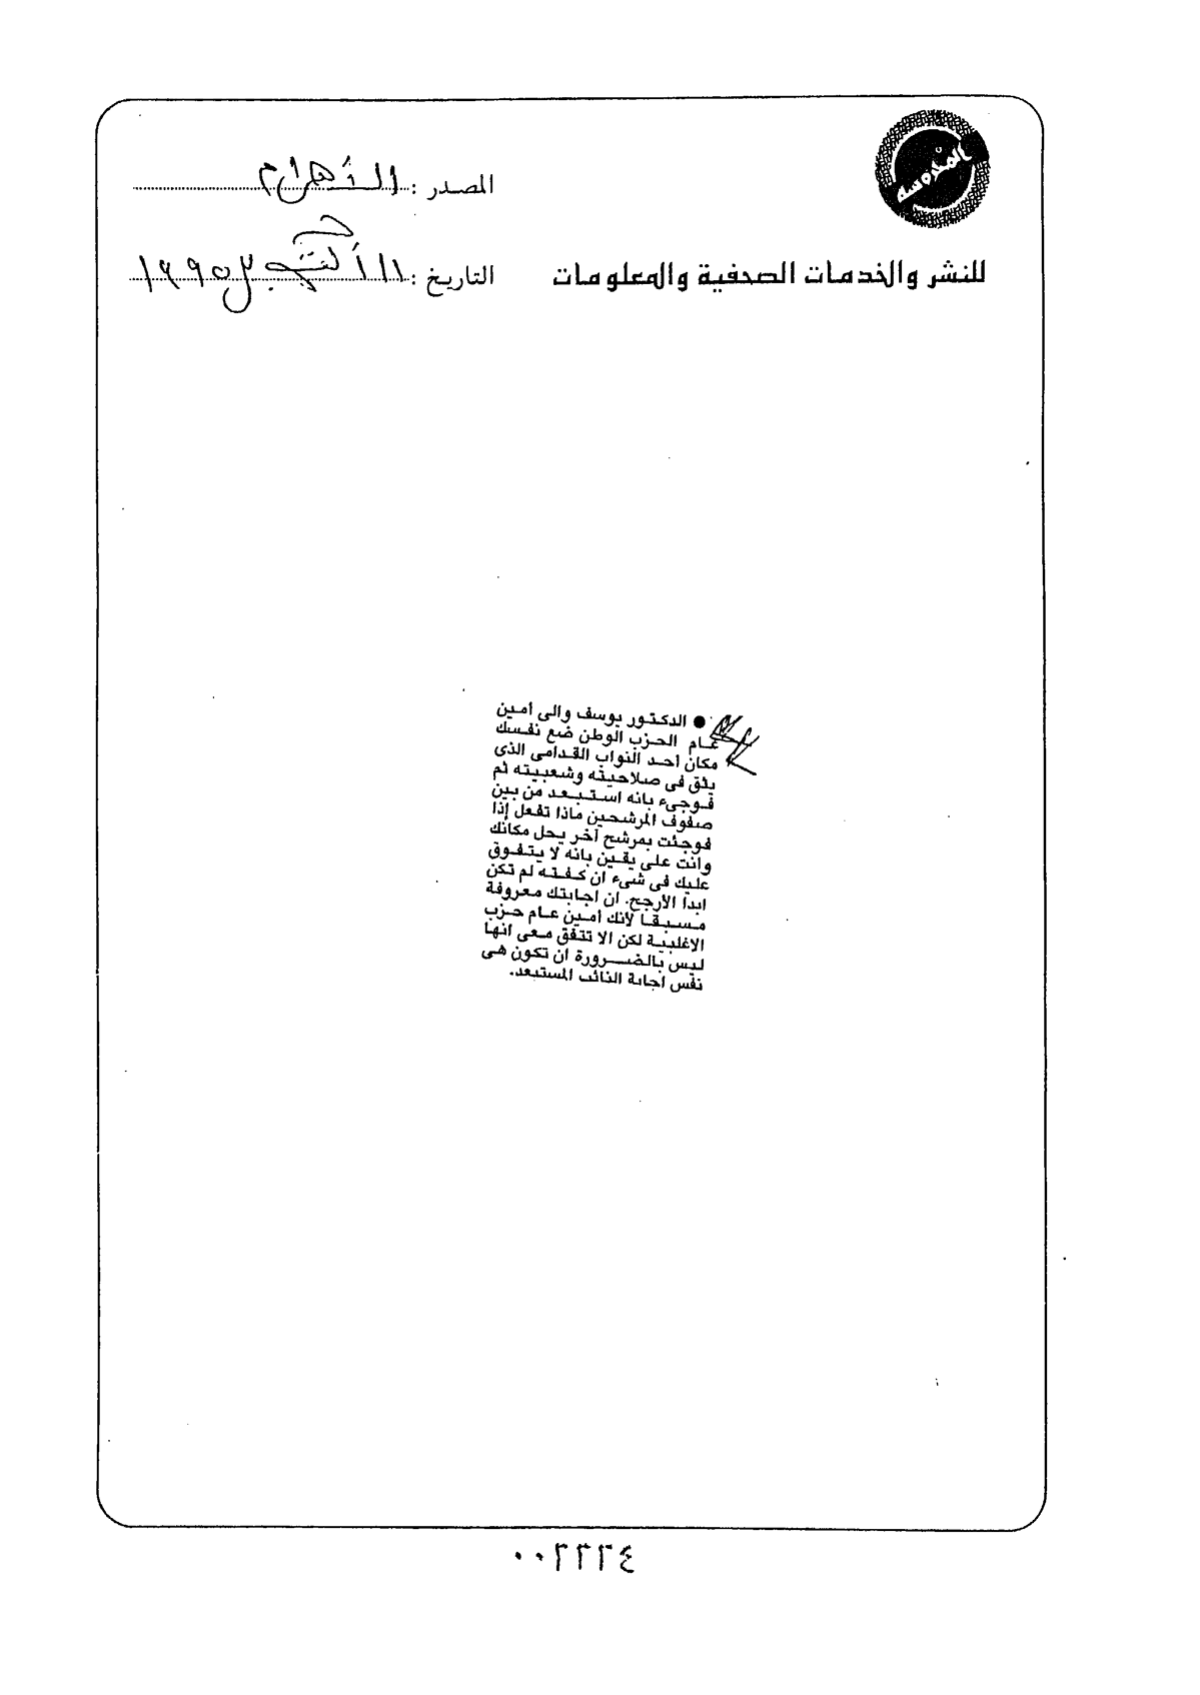 المحروسة
المصدر : الأهرام
للنشر والخدمات الصحفية والمعلومات
التاريخ : ١١ أكتوبر ١٩٩٥
● الدكتور يوسف والى امين
عام الحزب الوطن ضع نفسك
مكان احد النواب القدامى الذى
يثق فى صلاحيته وشعبيته ثم
فوجىء بانه استبعد من بين
صفوف المرشحين ماذا تفعل إذا
فوجئت بمرشح آخر يحل مكانك
وانت على يقين بانه لا يتفوق
عليك فى شىء ان كفته لم تكن
ابدا الارجح. ان اجابتك معروفة
مسبقا لأنك امين عام حزب
الاغلبية لكن الا تتفق معى انها
ليس بالضرورة ان تكون هى
نفس اجابة النائب المستبعد.